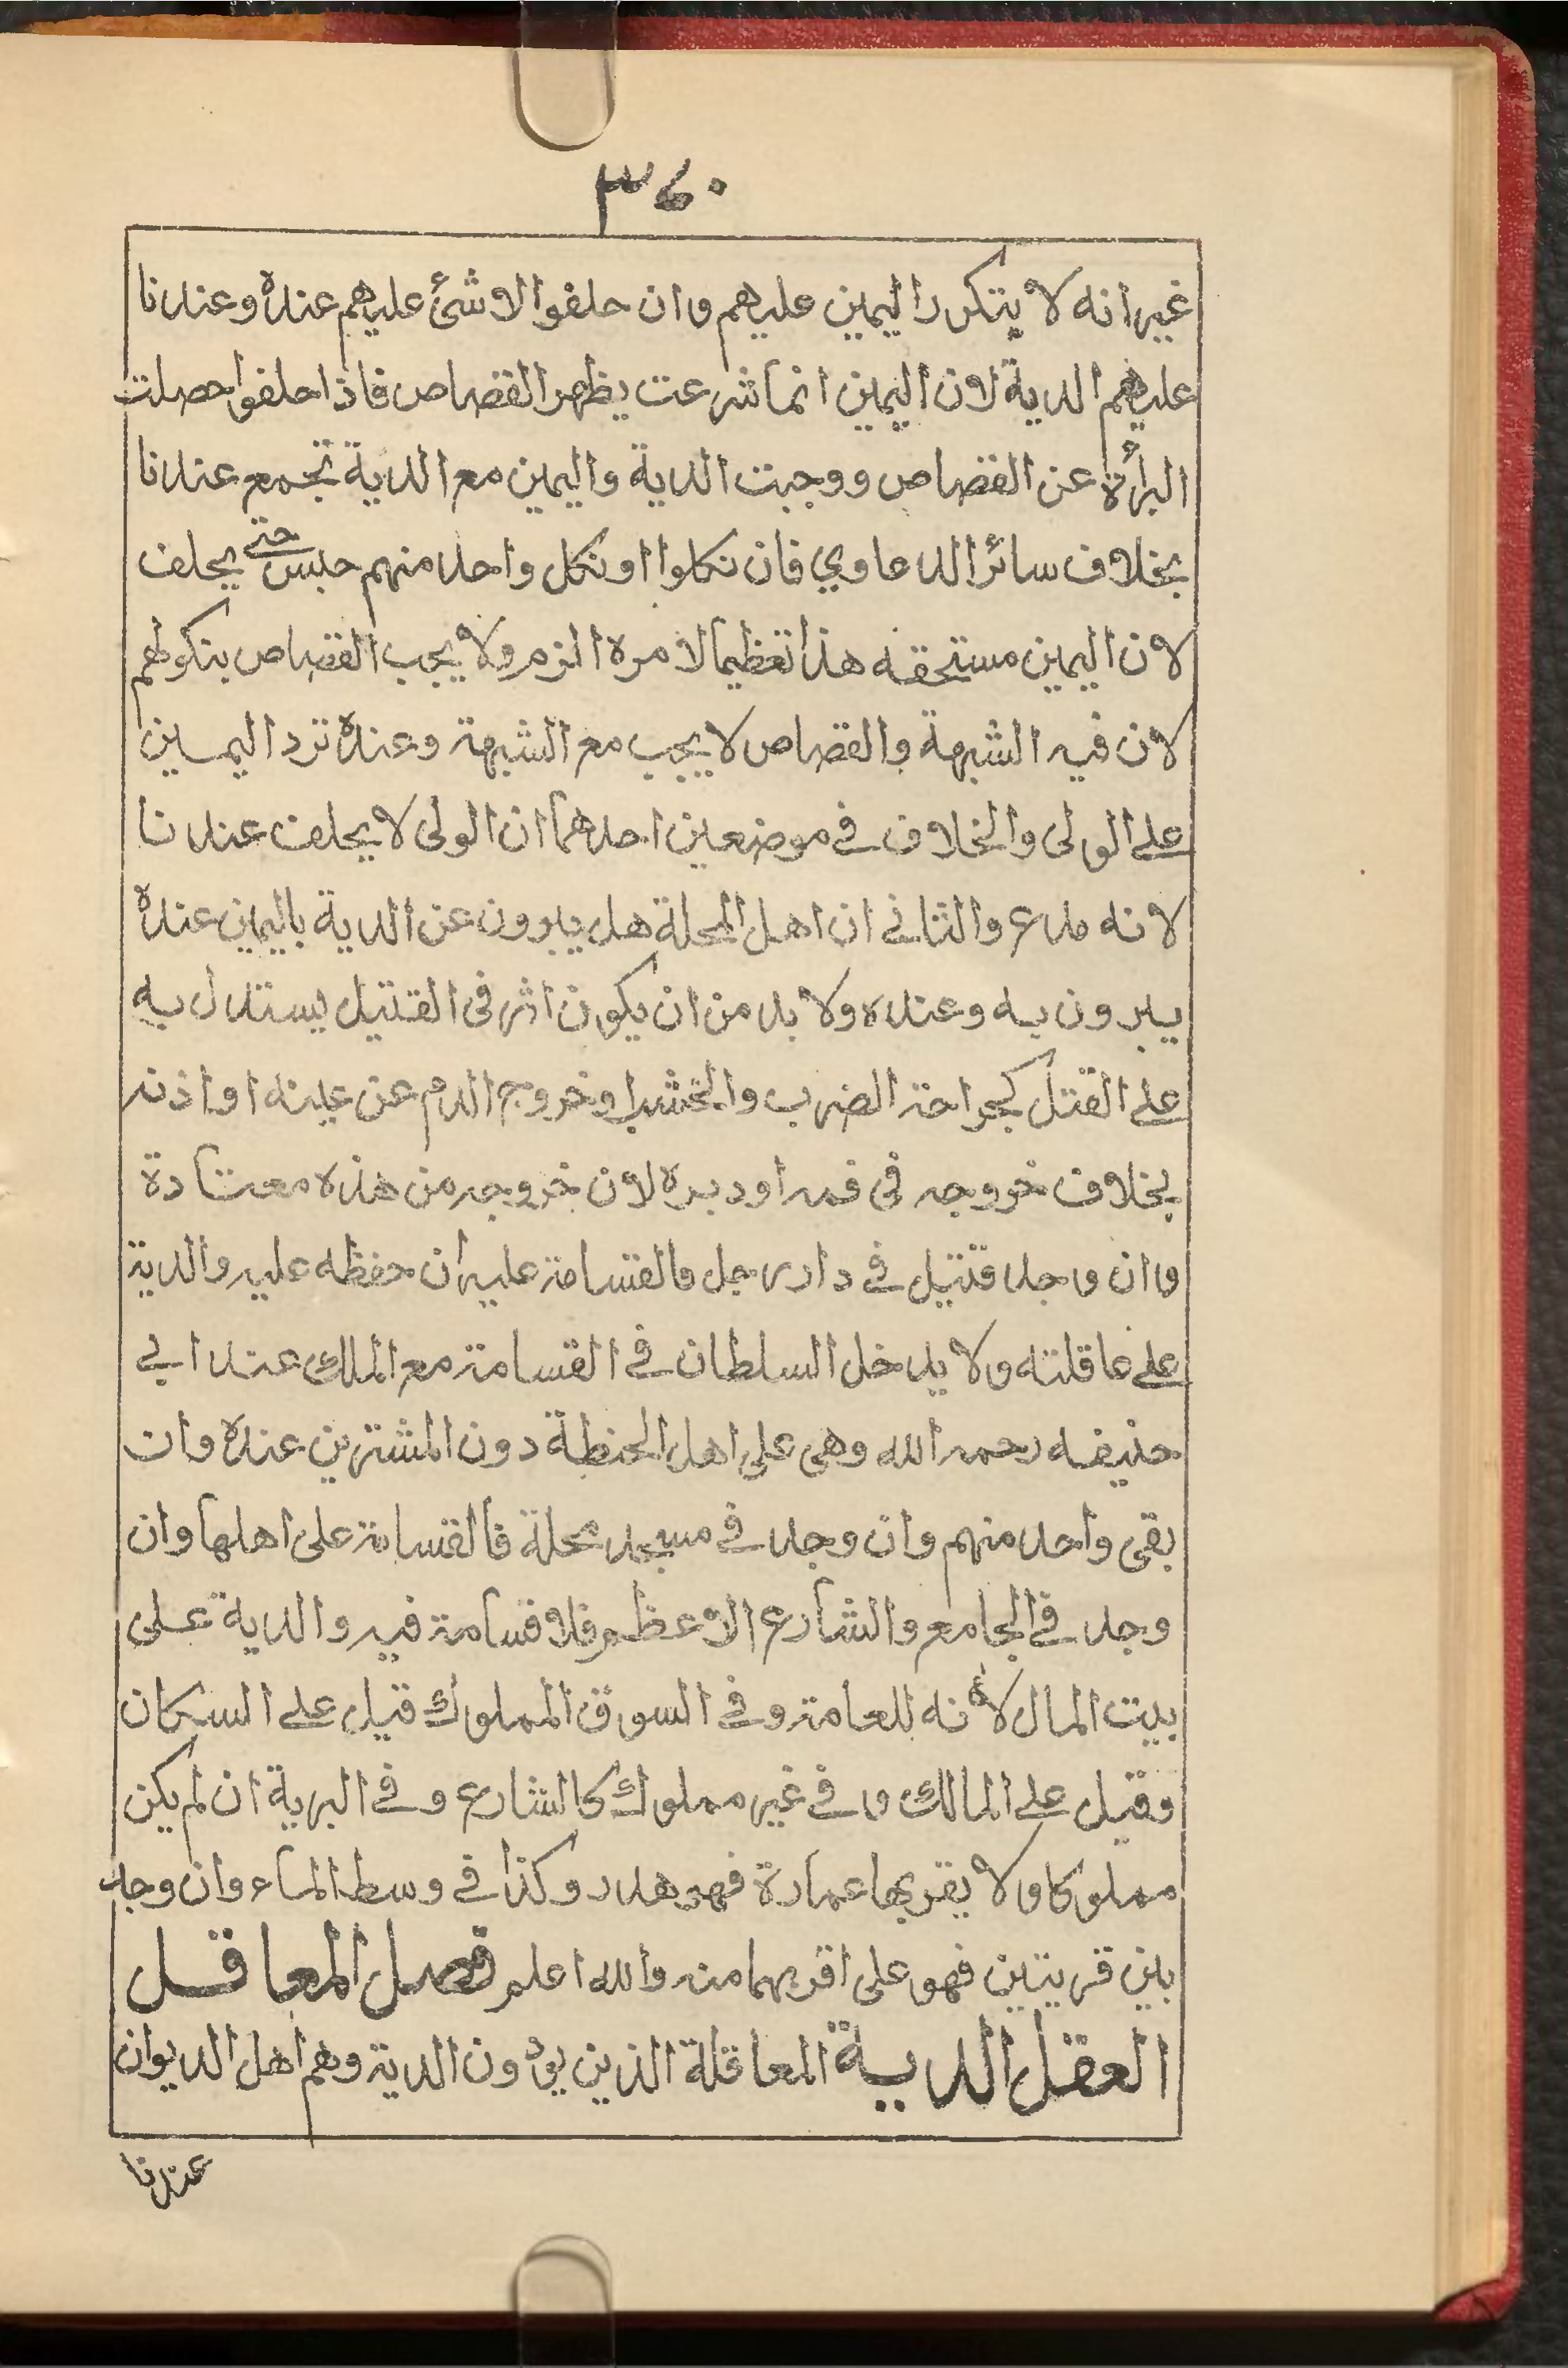 ٣٤٠
غيرانه لا يتكرر اليمين عليهم وان حلفوا لا شئ عليهم عنده وعندنا
عليهم الدية لان اليمين انما شرعت يظهر القصاص فاذا حلفوا حصلت
البرأة عن القصاص ووجبت الدية واليمين مع الدية تجمع عندنا
بخلاف سائر الدعاوي فان نكلوا او نكل واحد منهم حبس حتى يحلف
لان اليمين مستحقه هذا تعظيما لامره الزم ولا يجب القصاص بنكولهم
لان فيه الشبهة والقصاص لا يجب مع الشبهة وعنده ترد اليمين
على الولى والخلاف في موضعين احدهما ان الولى لا يحلف عندنا
لانه مدع والثاني ان اهل المحلة هل يبرون عن الدية باليمين عنده
يبرون به وعنده ولا بد من ان يكون اثر فى القتيل يستدل به
على القتل كجراحة الضرب والخشبا وخروج الدم عن عينه او اذنه
بخلاف خروجه فى فمه او دبره لان خروجه من هذه معتادة
وان وجد قتيل في دار رجل فالقسامة عليه ان حفظه عليه والدية
على عاقلته ولا يدخل السلطان في القسامة مع الملاك عند ابي
حنيفه رحمه الله وهى على اهل الحنطة دون المشترين عنده وان
بقى واحد منهم وان وجد في مسجد محلة فالقسامة على اهلها وان
وجد في الجامع والشارع الاعظم فلا قسامة فيه والدية على
بيت المال لأنه للعامة وفي السوق المملوك قيل على السكان
وقيل على المالك وفي غير مملوك كالشارع وفي البرية ان لم يكن
مملوكا ولا يقربها عمارة فهو هدر وكذا في وسط الماء وان وجد
بين قريتين فهو على اقربهما منه والله اعلم فصل المعاقل
العقل الدية المعاقلة الذين يؤدون الدية وهم اهل الديوان
عندنا